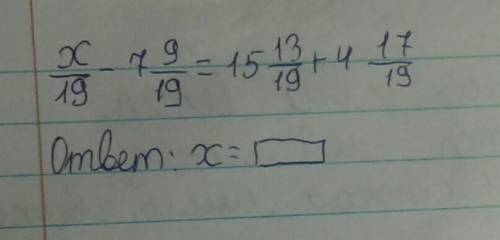 x/19 - 7 9/19 = 15 13/19 + 4 17/19
Ответ: x =